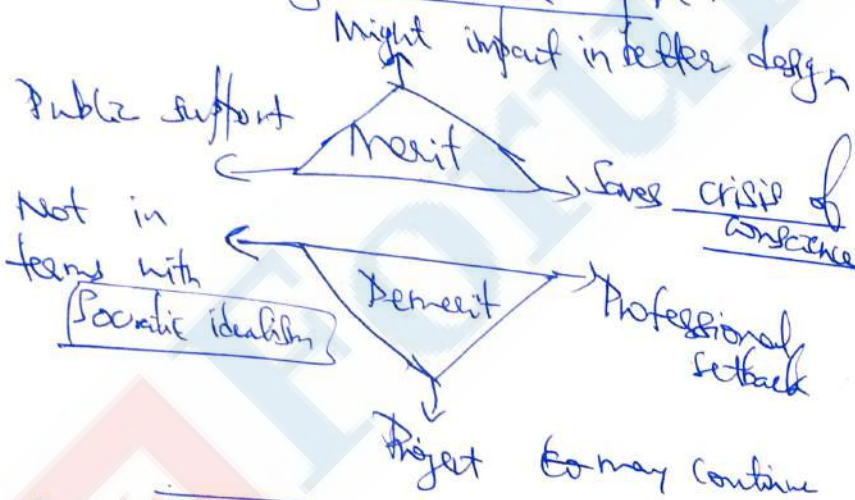 Might impact in better design
Public support
Merit
Saves crisis of
conscience
Not in
terms with
Socratic idealism
Demerit
Professional
setback
Project may continue